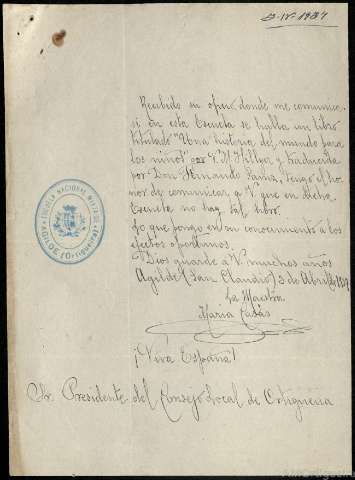 Recibido su oficio donde me comunica
si en esta Escuela se halla un libro
titulado "Una historia del mundo para
los niños" por V. M. Hillyer, y traducida
por Don Fernando Sainz, tengo el ho-
nor de comunicar a Vd que en dicha
Escuela no hay tal libro.
Lo que pongo en su conocimiento a los
efectos oportunos.
Dios guarde a Vd muchos años
(San Claudio) 3 de Abril
La Maestra
María Casás
¡Viva España!
Sr. Presidente del Consejo Local de Ortigueira
ESCUELA NACIONAL MIXTA DE
(Ortigueira)